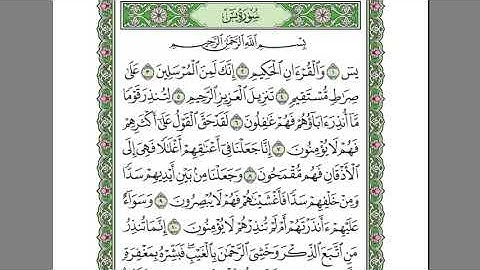 سُورَةُ يسٓ
بِسْمِ ٱللَّهِ ٱلرَّحْمَٰنِ ٱلرَّحِيمِ
يسٓ ١ وَٱلْقُرْءَانِ ٱلْحَكِيمِ ٢ إِنَّكَ لَمِنَ ٱلْمُرْسَلِينَ ٣ عَلَىٰ
صِرَٰطٍ مُّسْتَقِيمٍ ٤ تَنزِيلَ ٱلْعَزِيزِ ٱلرَّحِيمِ ٥ لِتُنذِرَ قَوْمًا
مَّآ أُنذِرَ ءَابَآؤُهُمْ فَهُمْ غَٰفِلُونَ ٦ لَقَدْ حَقَّ ٱلْقَوْلُ عَلَىٰٓ أَكْثَرِهِمْ
فَهُمْ لَا يُؤْمِنُونَ ٧ إِنَّا جَعَلْنَا فِىٓ أَعْنَٰقِهِمْ أَغْلَٰلًا فَهِىَ إِلَى
ٱلْأَذْقَانِ فَهُم مُّقْمَحُونَ ٨ وَجَعَلْنَا مِنۢ بَيْنِ أَيْدِيهِمْ سَدًّا
وَمِنْ خَلْفِهِمْ سَدًّا فَأَغْشَيْنَٰهُمْ فَهُمْ لَا يُبْصِرُونَ ٩ وَسَوَآءٌ
عَلَيْهِمْ ءَأَنذَرْتَهُمْ أَمْ لَمْ تُنذِرْهُمْ لَا يُؤْمِنُونَ ١٠ إِنَّمَا تُنذِرُ
مَنِ ٱتَّبَعَ ٱلذِّكْرَ وَخَشِىَ ٱلرَّحْمَٰنَ بِٱلْغَيْبِ فَبَشِّرْهُ بِمَغْفِرَةٍ